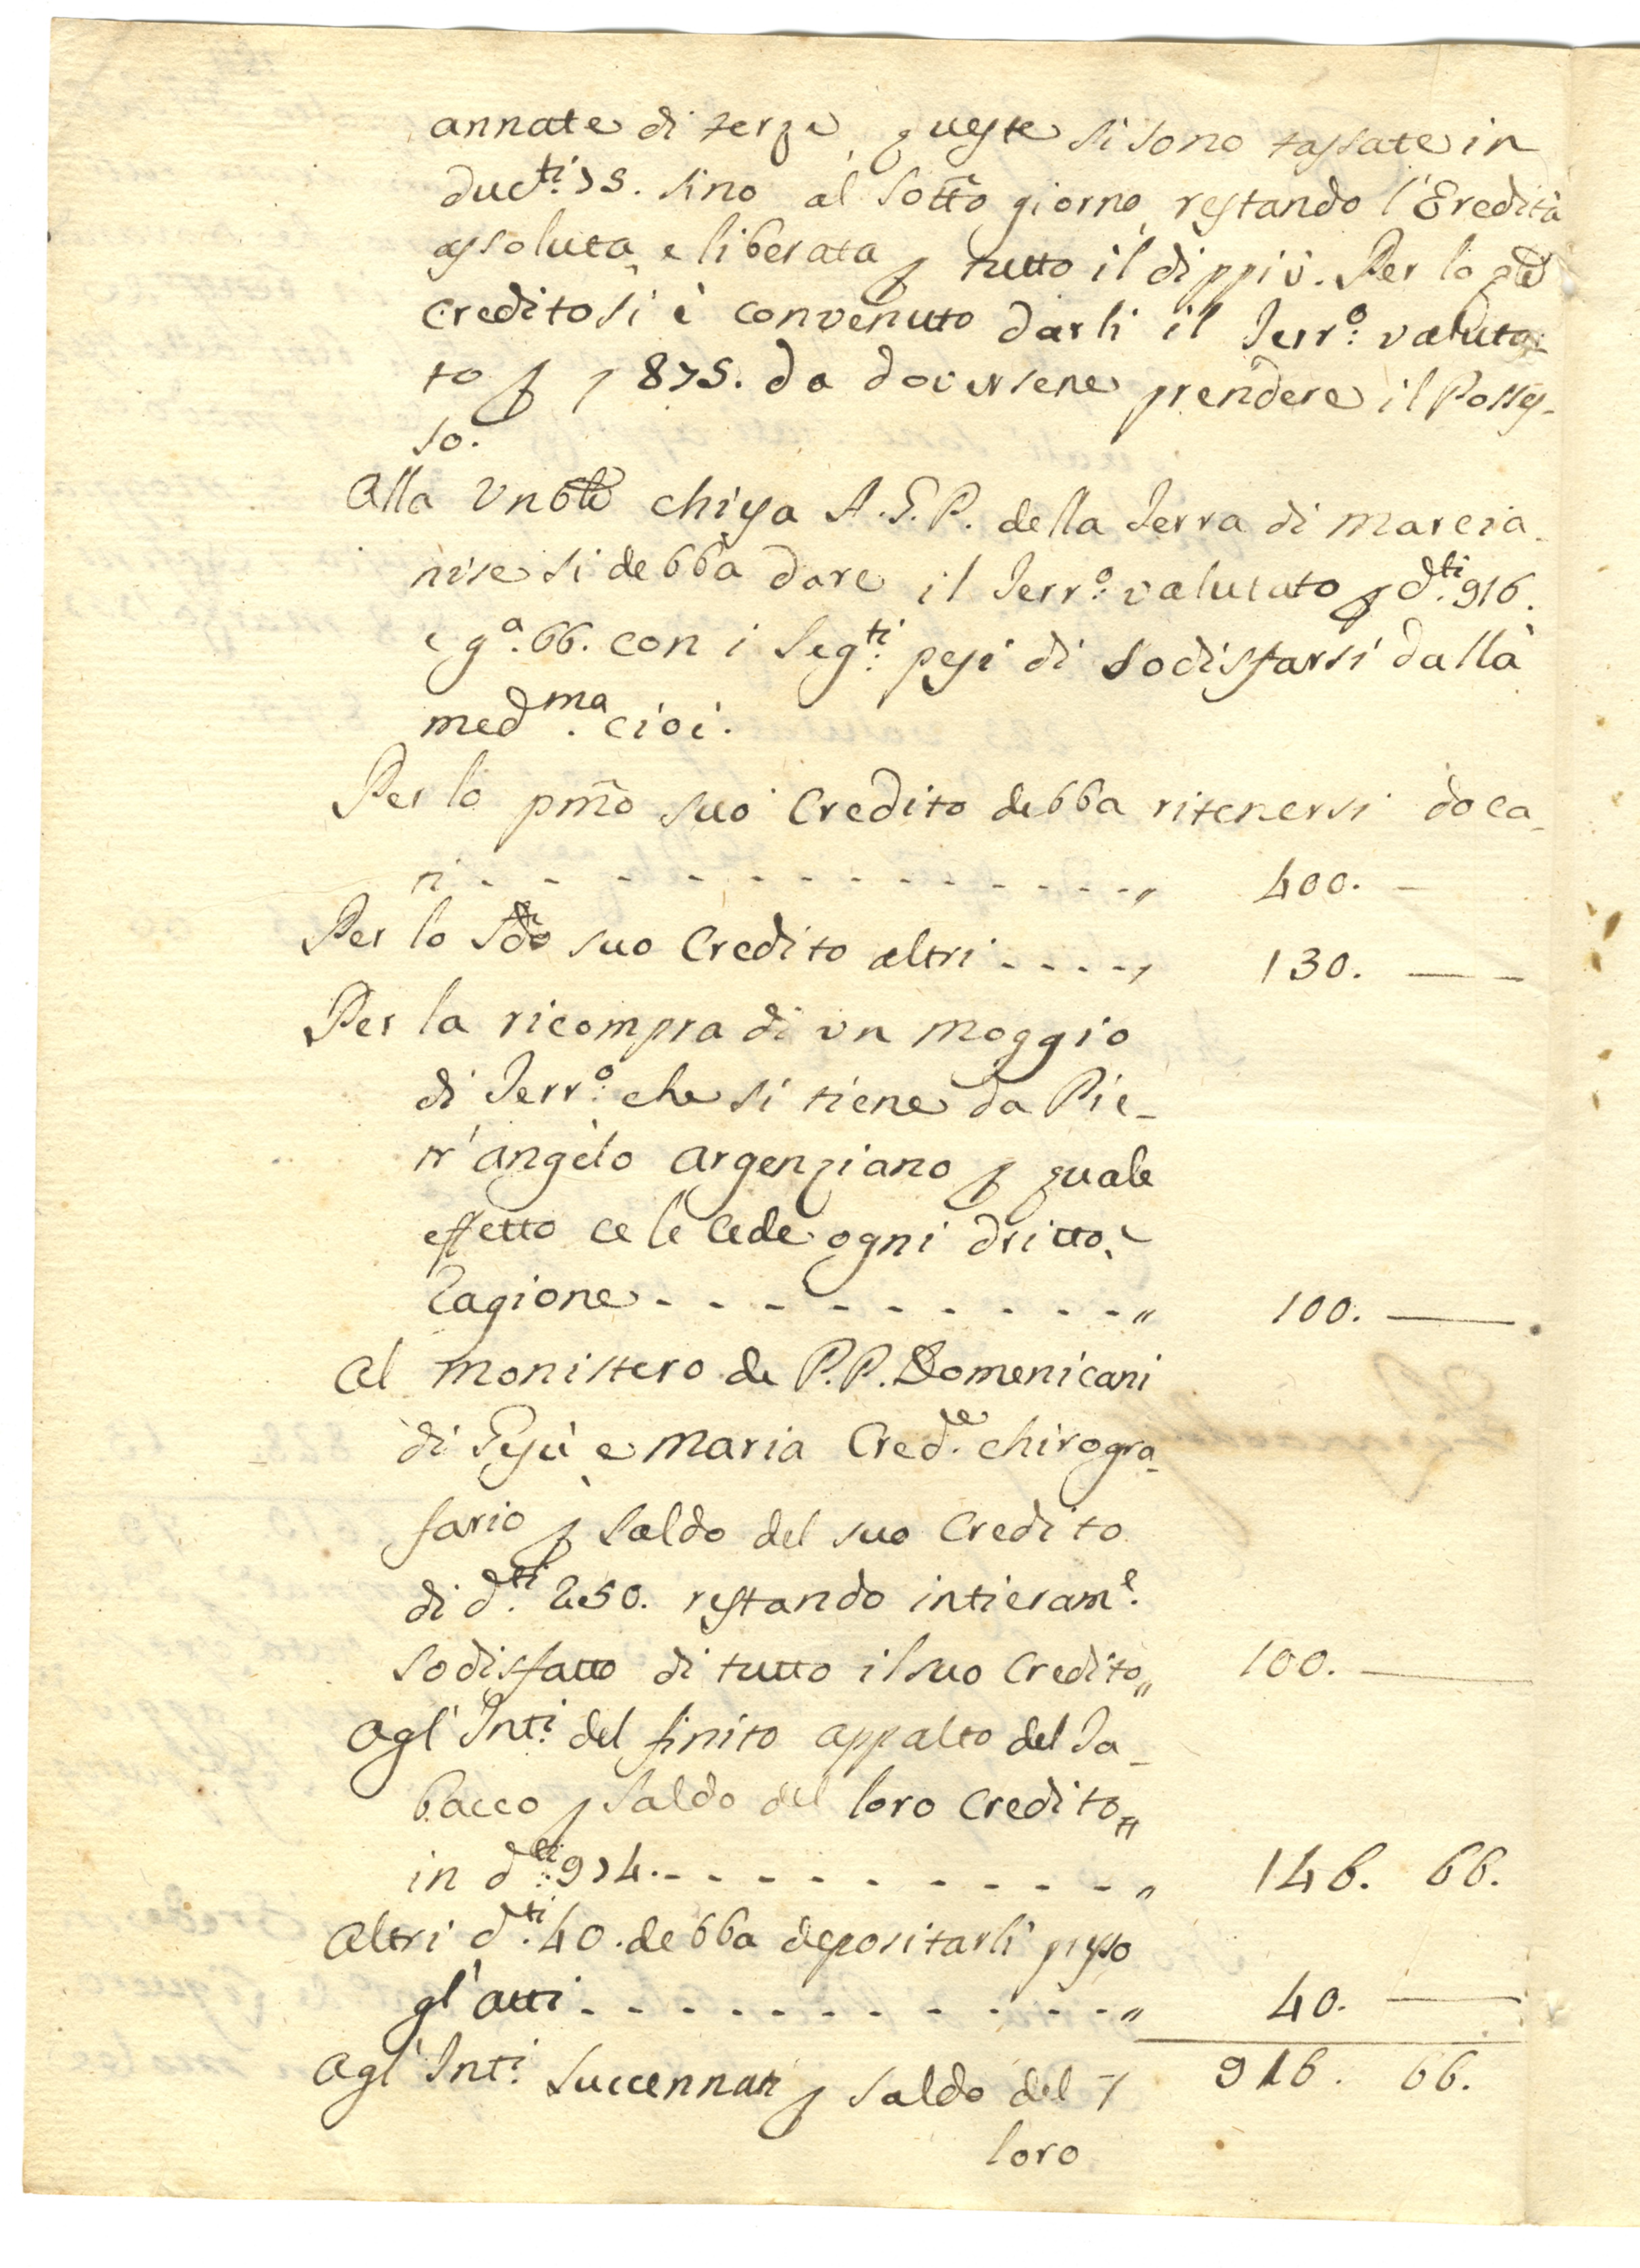 annate di terze, queste si sono tassate in
duc.ti 75. sino al sotto giorno, restando l'Eredità
assoluta, e liberata p tutto il dippiù. Per lo qle
credito si è convenuto darli il Terr.o valuta
to p 875. da doversene prendere il Posses-
so.
Alla Vnble chiesa A.G.P. della Terra di Marcia-
nise si debba dare il Terr.o valutato p d.ti 916.
e g.a 66. con i seg.ti pesi di sodisfarsi dalla
med.ma cioè.
Per lo pmo suo Credito debba ritenersi doca-
ti - - - - - - - - - - - " 400. —
Per lo sdo suo Credito altri - - - - , 130. —
Per la ricompra di vn moggio
di Terr.o che si tiene da Pie-
tr'angelo Argenziano p quale
effetto ce le cede ogni dritto, e
ragione - - - - - - - - - " 100. —
Al Monistero de P.P. Domenicani
di Gesù e Maria Cred.e chirogra-
fario p saldo del suo Credito
di d.ti 250. restando intieram.e
sodisfatto di tutto il suo Credito " 100. —
Agl' Int.i del finito appalto del Ta-
bacco p saldo del loro Credito "
in d.ti 974. - - - - - - - - - " 146. 66.
Altri d.ti 40. debba depositarli presso
gl'atti - - - - - - - - - - " 40. —
916. 66.
Agl' Int.i succennati p saldo del
loro